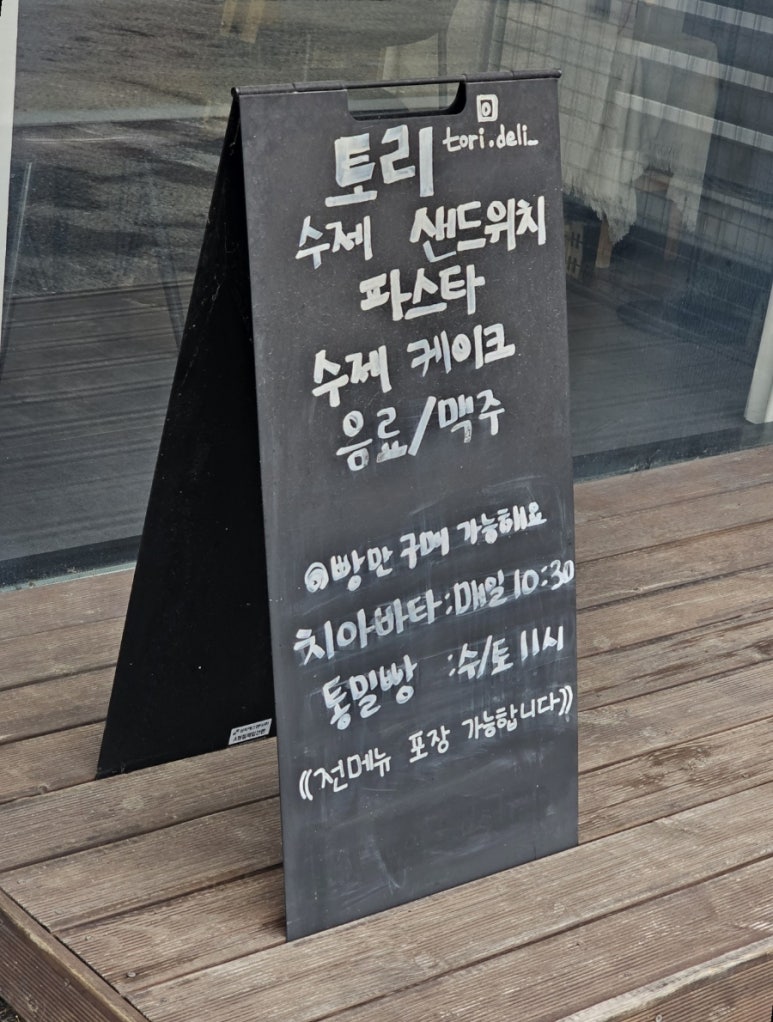 tori.deli_
토리
수제 샌드위치
파스타
수제 케이크
음료/맥주
빵만 구매 가능해요
치아바타:매일 10:30
통밀빵 :수/토 11시
((전메뉴 포장 가능합니다))